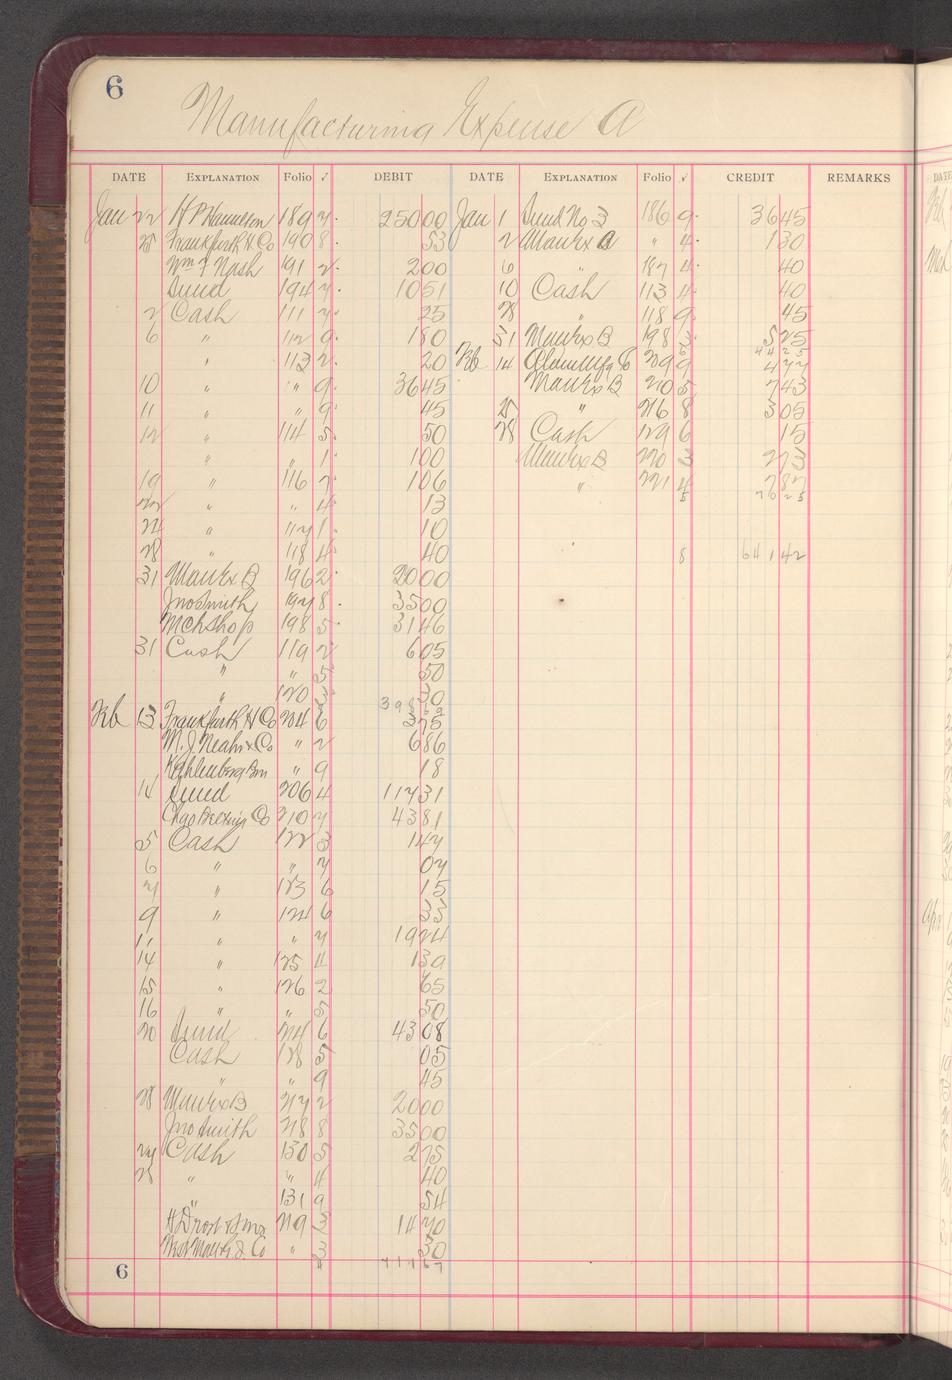 6
Manufacturing Expense A
DATE EXPLANATION Folio √ DEBIT DATE EXPLANATION Folio √ CREDIT REMARKS
Jan 22 H P Hamilton 189 7. 250 00 Jan 1 Sund No 3 186 9. 36 45
28 Frankfurth H Co 190 8. 53 2 Man Ex B " 4. 1 30
Wm F Nash 191 2. 2 00 6 " 187 4. 40
Sund 194 7. 10 51 10 Cash 113 4. 40
2 Cash 111 7. 25 28 " 118 9. 45
6 " 112 9. 1 80 31 Man Ex B 198 3. 5 25
" 113 2. 20 Feb 14 Mfg Co 209 9 4 77
10 " " 9. 36 45 Man Ex B 210 5 7 43
11 " " 9. 45 25 " 216 8 3 05
12 " 114 5. 50 28 Cash 129 6 15
" " 1. 1 00 Man Ex B 220 3 2 73
19 " 116 7. 1 06 " 221 4 7 87
22 " " 4. 13 5 76 25
24 " 117 1. 10
28 " 118 4. 40 8 641 42
31 Man Ex B 196 2. 20 00
Jno Smith 197 8. 35 00
Mch Shop 198 5. 31 46
31 Cash 119 2 6 05
" " 5 50
" 120 3 30
Feb 13 Frankfurth H Co 204 6 3 75
M. J. Neahr & Co " 2 6 86
Kahlenberg Bro " 9 18
14 Sund 206 4 117 31
Chas Co 210 7 43 81
5 Cash 122 3 1 47
6 " " 7 07
7 " 123 6 15
9 " 124 6 35
11 " " 7 19 24
14 " 125 4 1 39
15 " 126 2 65
16 " " 5 50
20 Sund 214 6 43 08
Cash 128 5 05
" " 9 45
28 Man Ex B 217 2 20 00
Jno Smith 218 8 35 00
27 Cash 130 5 2 75
28 " " 4 40
" 131 9 54
H Drost & Sons 219 3 14 70
Co " 3 30
6